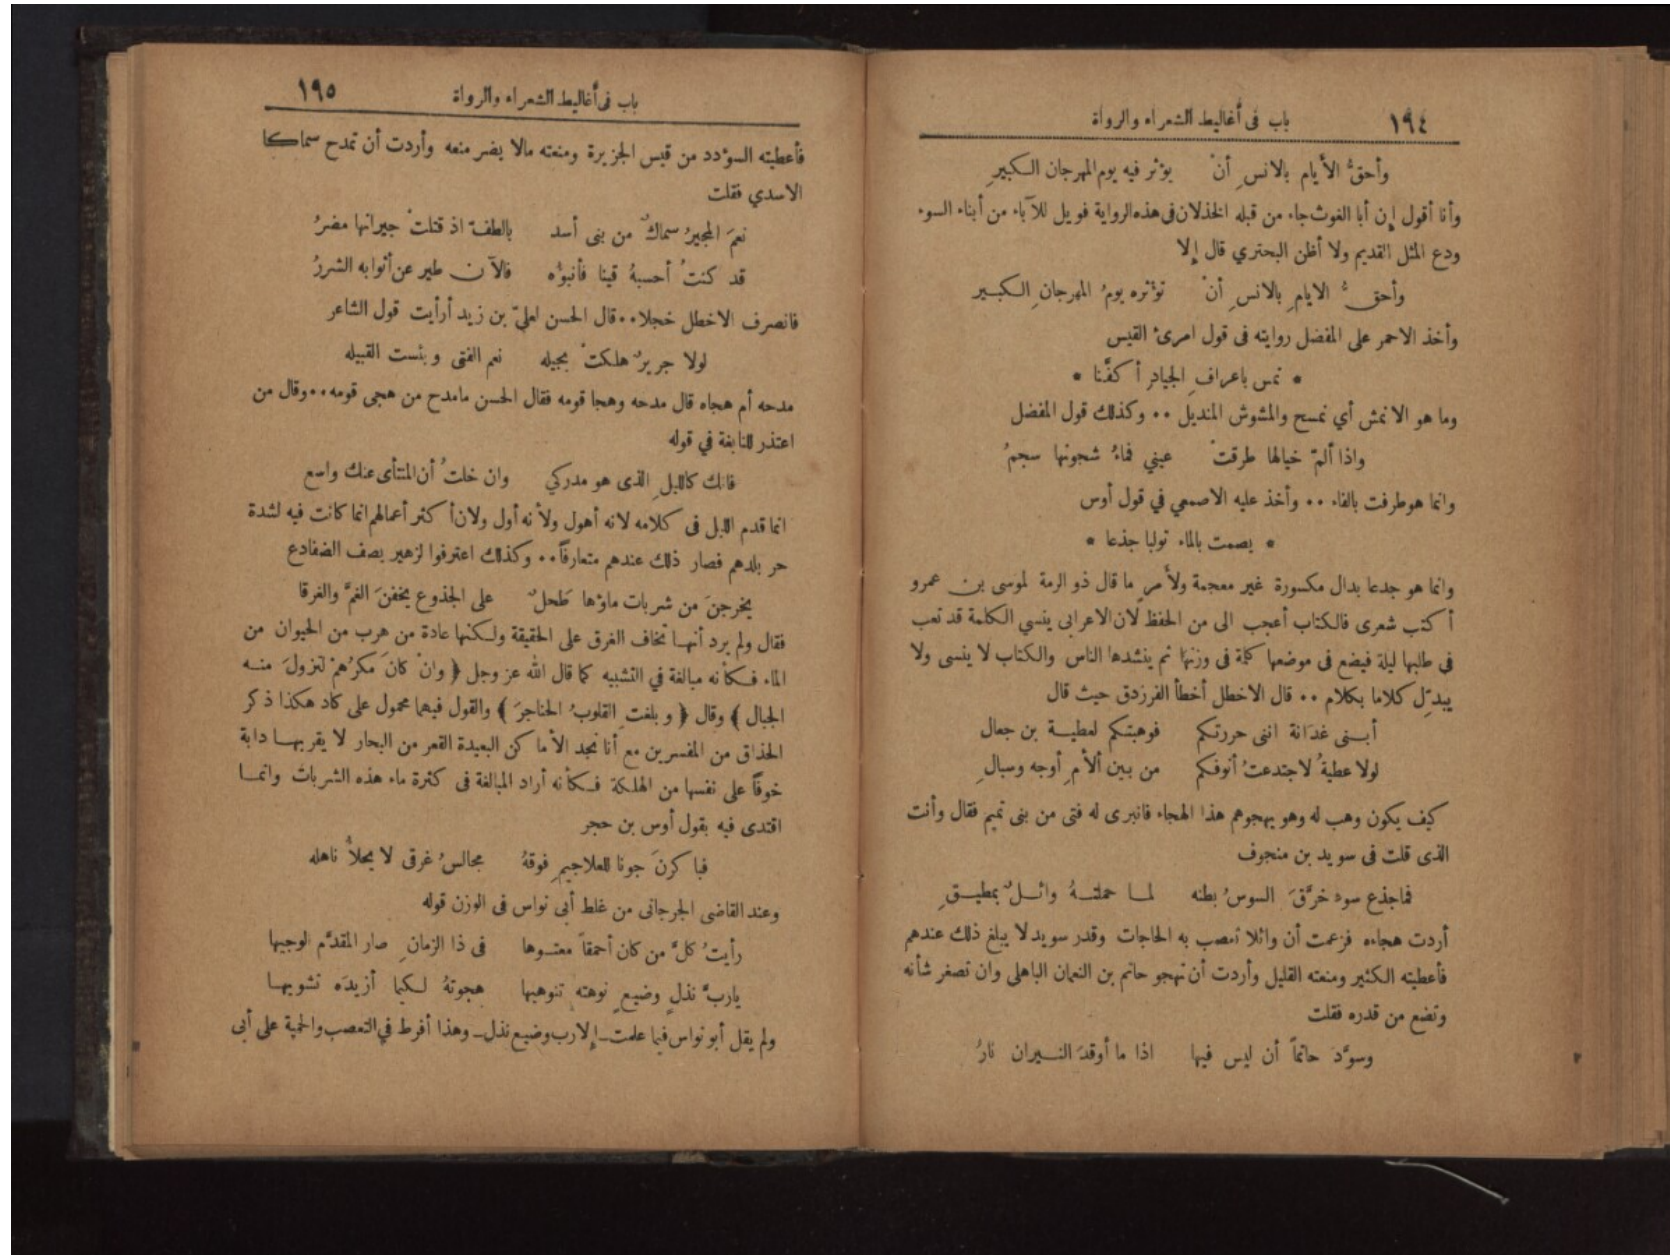 ١٩٤ باب فى أغاليط الشعراء والرواة
وأحقُّ الأيام بالانسِ أنْ يؤثر فيه يوم المهرجان الكبيرِ
وأنا أقول إن أبا الغوث جاء من قبله الخذلان فى هذه الرواية فويل للآباء من أبناء السوء
ودع المثل القديم ولا أظن البحتري قال إلا
وأحقُّ الايامِ بالانسِ أنْ تؤثره يومُ المهرجانِ الكبير
وأخذ الاحمر على المفضل روايته فى قول امرئ القيس
* تمس باعرافِ الجيادِ أكفَّنا *
وما هو الا نمش أي نمسح والمشوش المنديل ٠٠ وكذلك قول المفضل
واذا ألمّ خيالها طرقتْ عيني فماءُ شجونها سجمُ
وانما هو طرفت بالفاء ٠٠ وأخذ عليه الاصمعي في قول أوس
* يصمت بالماء تولبا جذعا *
وانما هو جدعا بدال مكسورة غير معجمة ولأمرٍ ما قال ذو الرمة لموسى بن عمرو
أكتب شعرى فالكتاب أعجب الى من الحفظ لان الاعرابى ينسي الكلمة قد تعب
فى طلبها ليلة فيضع فى موضعها كلمة فى وزنها ثم ينشدها الناس والكتاب لا ينسى ولا
يبدّل كلاما بكلام ٠٠ قال الاخطل أخطأ الفرزدق حيث قال
أبنى غدَانة اننى حررتكم فوهبتكم لعطية بن جعال
لولا عطيةُ لاجتدعتُ أنوفكم من بين ألأمِ أوجه وسبالِ
كيف يكون وهب له وهو يهجوهم هذا الهجاء فانبرى له فتى من بنى تميم فقال وأنت
الذى قلت فى سويد بن منجوف
فماجذع سوء خرَّقَ السوسُ بطنه لما حملتهُ وائلٌ بمطيقِ
أردت هجاءه فزعمت أن وائلا تعصب به الحاجات وقدر سويد لا يبلغ ذلك عندهم
فأعطيته الكثير ومنعته القليل وأردت أن تهجو حاتم بن النعمان الباهلى وان تصغر شأنه
وتضع من قدره فقلت
وسوَّدَ حاتماً أن ليس فيها اذا ما أوقدَ النيران نارُ
باب فى أغاليط الشعراء والرواة ١٩٥
فأعطيته السودد من قيس الجزيرة ومنعته مالا يضر منعه وأردت أن تمدح سماكا
الاسدي فقلت
نعمَ المجيرُ سماكٌ من بنى أسد بالطفّ اذ قتلتْ جيرانها مضرُ
قد كنتُ أحسبهُ قينا فأنبؤه فالآن طير عن أثوابه الشررُ
فانصرف الاخطل خجلا٠٠ قال الحسن لعليّ بن زيد أرأيت قول الشاعر
لولا جريرٌ هلكتْ بجيله نعم الفتى وبئست القبيله
مدحه أم هجاه قال مدحه وهجا قومه فقال الحسن مامدح من هجى قومه٠٠ وقال من
اعتذر للنابغة في قوله
فانك كالليلِ الذى هو مدركي وان خلتُ أن المنتأى عنك واسع
انما قدم الليل فى كلامه لانه أهول ولأنه أول ولان أكثر أعمالهم انما كانت فيه لشدة
حر بلدهم فصار ذلك عندهم متعارفاً٠٠ وكذلك اعترفوا لزهير يصف الضفادع
يخرجنَ من شربات ماؤها طَحلٌ على الجذوع يخفنَ الغمَّ والغرقا
فقال ولم يرد أنها تخاف الغرق على الحقيقة ولكنها عادة من هرب من الحيوان من
الماء فكأنه مبالغة في التشبيه كما قال الله عز وجل ﴿ وانْ كانَ مكرُهمْ لتزولَ منه
الجبال ﴾ وقال ﴿ وبلغتِ القلوبُ الحناجرَ ﴾ والقول فيهما محمول على كاد هكذا ذكر
الحذاق من المفسرين مع أنا نجد الأماكن البعيدة القعر من البحار لا يقربها دابة
خوفاً على نفسها من الهلكة فكأنه أراد المبالغة فى كثرة ماء هذه الشربات وانما
اقتدى فيه بقول أوس بن حجر
فباكرنَ جونا للعلاجيمِ فوقهُ مجالسُ غرقى لا يحلأُ ناهله
وعند القاضى الجرجانى من غلط أبى نواس فى الوزن قوله
رأيتُ كلَّ من كان أحمقاً معتوها فى ذا الزمانِ صار المقدَّم الوجيها
ياربَّ نذلٍ وضيعٍ نوهته تنويها هجوتهُ لكيما أزيدَه تشويها
ولم يقل أبو نواس فيما علمت ـ إلا رب وضيع نذل ـ وهذا أفرط في التعصب والحمية على أبى